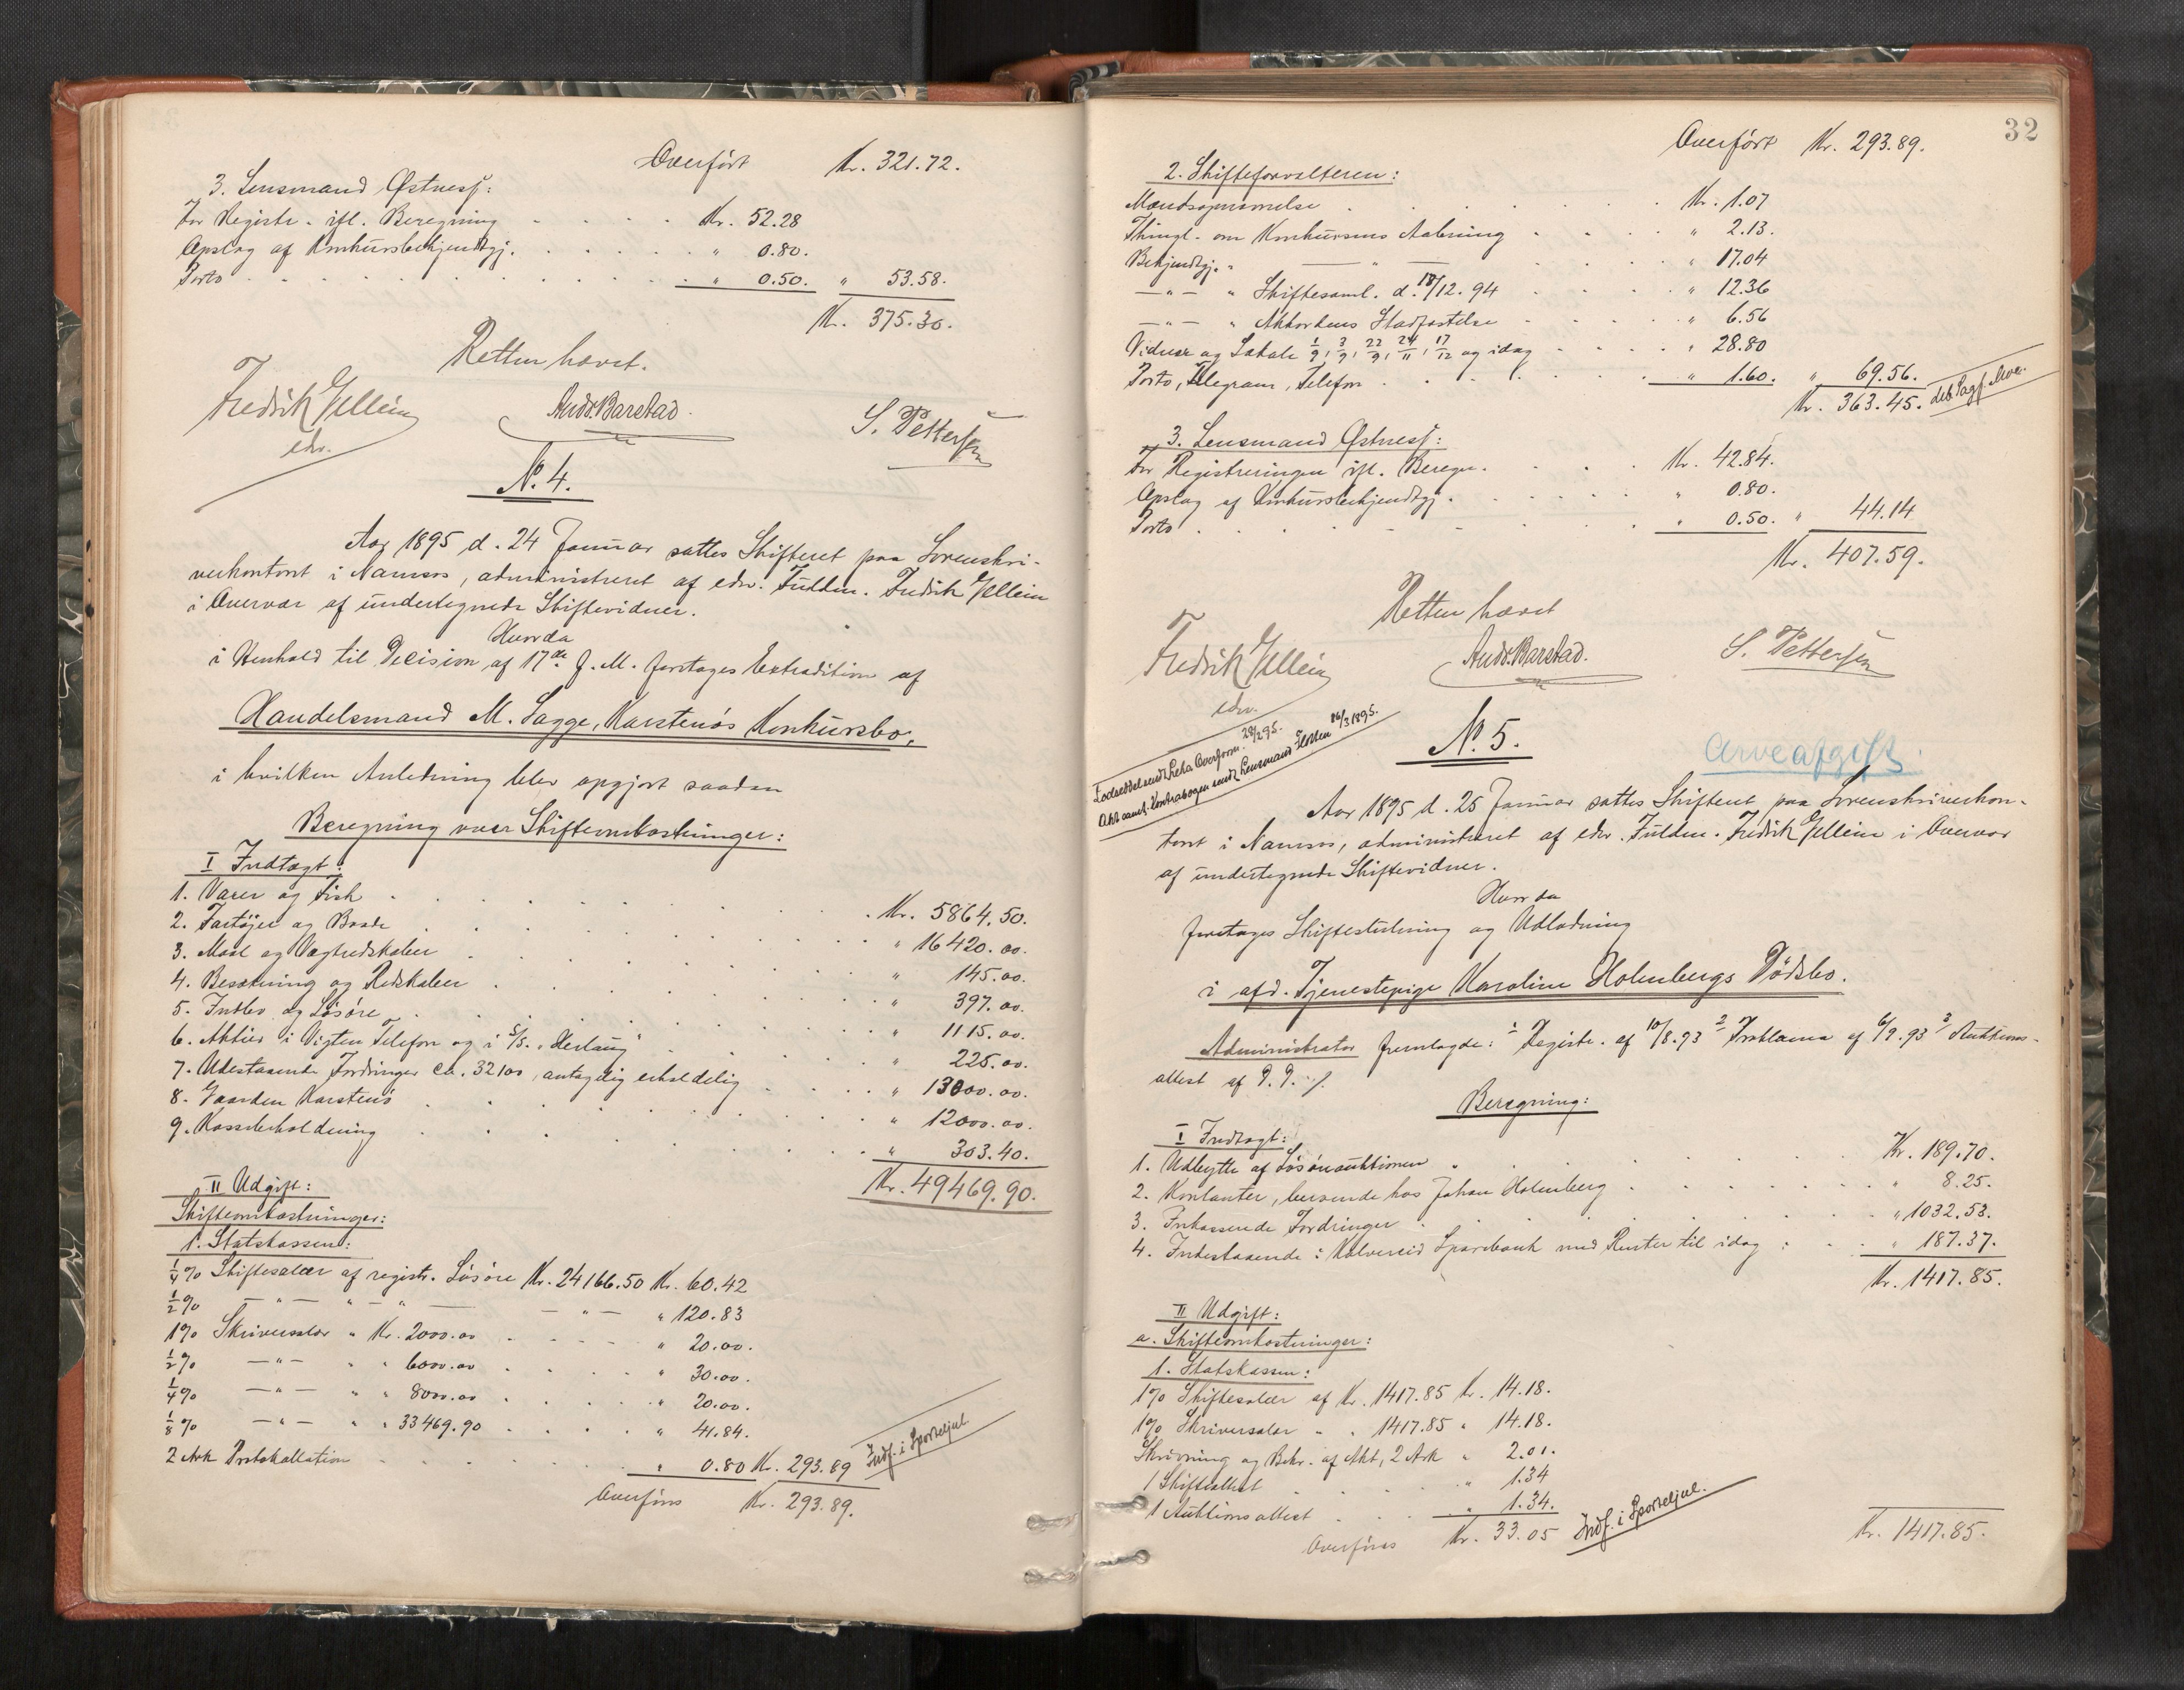 Overført Kr. 321.72.
3. Lensmand Østness:
For Registr. ifl. Beregning Kr. 52.28
Opslag af Konkursbekjendtgj. " 0.80.
Porto " 0.50. " 53.58.
Kr. 375.30.
Retten hævet.
Fredrik Gellein Andr. Barstad. S. Pettersen
edv.
No. 4.
Aar 1895 d. 24 Januar sattes Skifteret paa Sorenskri-
verkontoret i Namsos, administreret af edv. Fuldm. Fredrik Gellein
i Overvær af undertegnede Skiftevidner.
Hvorda
i Henhold til Decision af 17de d. M. foretages Extradition af
Handelsmand M. Sagge, Karstenøs Konkursbo,
i hvilken Anledning blev opgjort saadan
Beregning over Skifteomkostninger:
I Indtægt:
1. Varer og Fisk Kr. 5864.50.
2. Fartøjer og Baade " 16420.00.
3. Maal og Vægtredskaber " 145.00.
4. Besætning og Redskaber " 397.00.
5. Indbo og Løsøre " 1115.00.
6. Aktier i Vigten Telefon og i S/S. "Herlaug" " 225.00.
7. Udestaaende Fordringer ca. 32100, antagelig erholdelig " 13000.00.
8. Gaarden Karstenø " 12000.00.
9. Kassebeholdning " 303.40.
Kr. 49469.90.
II Udgift:
Skifteomkostninger:
1. Statskassen:
1/4 % Skiftesalær af registr. Løsøre Kr. 24166.50 Kr. 60.42
1/2 % — " — " — " — — " — " 120.83
1 % Skriversalær " Kr. 2000.00 " 20.00.
1/2 % — " — " " 6000.00 " 30.00.
1/4 % — " — " " 8000.00 " 20.00.
1/8 % — " — " " 33469.90 " 41.84.
2 Ark Protokollation " 0.80 Kr. 293.89 Indf. i Sporteljul.
Overføres Kr. 293.89.
32
Overført Kr. 293.89.
2. Skifteforvalteren:
Mændsopnævnelse Kr. 1.07
Thingl. om Konkursens Aabning " 2.13.
Bekjendtgj. " — " — " 17.04
— " — " Skiftesaml. d. 18/12. 94 " 12.36
— " — " Akkordens Stadfæstelse " 6.56
Vidner og Lokale 1/9, 3/9, 22/9, 24/11, 17/12 og idag " 28.80
Porto, Telegram, Telefon " 1.60. " 69.56.
Kr. 363.45. deb. Sagf. Moe.
3. Lensmand Østness:
For Registreringen ifl. Beregn. Kr. 42.84.
Opslag af Konkursbekjendtgj. " 0.80.
Porto " 0.50. " 44.14
Kr. 407.59.
Retten hævet
Fredrik Gellein Andr. Barstad. S. Pettersen
edv.
No. 5.
Arveafgift.
Lodseddel sendt Leka Overform. 28/2 95.
Akt samt Kontrabogen sendt Lensmand Holten 16/3 1895.
Aar 1895 d. 25 Januar sattes Skifteret paa Sorenskriverkon-
toret i Namsos, administreret af edv. Fuldm. Fredrik Gellein i Overvær
af undertegnede Skiftevidner.
Hvorda
foretages Skifteslutning og Udlodning
i afd. Tjenestepige Karoline Holmbergs Dødsbo.
Administrator fremlagde: 1 Registr. af 10/8.93 2 Proklama af 6/9.93 3 Auktions-
attest af D.D. ./.
Beregning:
I Indtægt:
1. Udbytte af Løsøreauktionen Kr. 189.70.
2. Kontanter, beroende hos Johan Holmberg " 8.25.
3. Inkasserede Fordringer " 1032.53.
4. Indestaaende i Kolvereid Sparebank med Renter til idag " 187.37.
Kr. 1417.85.
II Udgift:
a. Skifteomkostninger:
1. Statskassen:
1 % Skiftesalær af Kr. 1417.85 Kr. 14.18.
1 % Skriversalær " " 1417.85 " 14.18.
Skrivning og Bekr. af Akt, 2 Ark " 2.01.
1 Skifteattest " 1.34
1 Auktionsattest " 1.34.
Overføres Kr. 33.05 Indf. i Sporteljul. Kr. 1417.85.